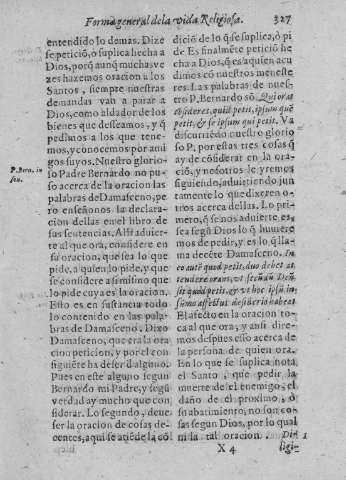 Forma general de la vida Religiosa. 327
entendido lo demas. Dize
se peticiō, ò suplica hecha a
Dios, porq̃ aunq̃ muchas ve
zes hazemos oracion a los
Santos, siempre nuestras
demandas van a parar a
Dios, como al dador de los
bienes que desseamos, y q̃
pedimos a los que tene-
mos, y conocemos por ami
gos suyos. Nuestro glorio-
P. Bern. in
so Padre Bernardo no pu-
so acerca de la oracion las
palabras de Damasceno, pe
ro enseñonos la declara-
cion dellas en el libro de
sus sentencias. Alli aduier-
te al que ora, considere en
su oracion, que sea lo que
pide, a quien lo pide, y que
se considere assimismo que
lo pide cuya es la oracion.
Esto es en sustancia todo
lo contenido en las pala-
bras de Damasceno. Dixo
Damasceno, que era la ora
cion peticion, y por el con
siguiēte ha de ser d̃ alguno.
Pues en este alguno segun
Bernardo mi Padre, y segũ
verdad ay mucho que con
siderar. Lo segundo, deue
ser la oracion de cosas de-
centes, aqui se atiēde la cō
diciō de lo q̃ se suplica, ò pi
de Es finalmēte peticiō he
cha a Dios. En que acu
dimos cō nuestros meneste
res. Las palabras de nues-
tro P. Bernardo sō. Qui orat
cōsideret, quid petit, ipsum quē
petit, & se ipsum qui petit. Va
discurriēdo nuestro glorio
so P. por estas tres cosas q̃
ay de cōsiderar en la ora-
ciō, y nosotros le yremos
siguiendo, aduirtiendo jun
tamente lo que dixeren o-
tros acerca dellas. Lo pri-
mero, q̃ se nos aduierte es,
sea segũ Dios lo q̃ huuiere
mos de pedir, y es lo q̃ lla-
ma decēte Damasceno. In
eo autē quod petit, duo debet at
tendere orans, ut secũdũ Deũ
sit quod petit, & ut hoc ipsũ in-
El afecto en la oracion to-
ca al que ora, y assi dire-
mos despues esso acerca de
la persona de quien ora.
En lo que se suplica nota
el Santo, que pedir la
muerte del enemigo, el
daño de el proximo, ò
su abatimiento, no son co-
sas segun Dios, por lo qual
ni la tal oracion.
X 4